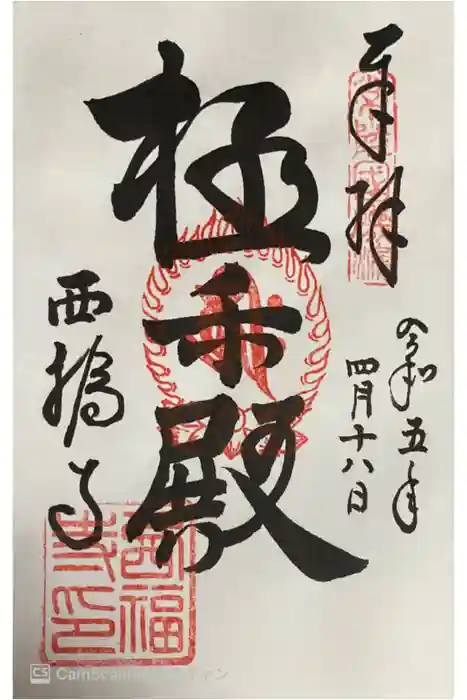 奉拝
令和五年
四月十八日
極楽殿
西福寺
西福寺印
CS CamScanner